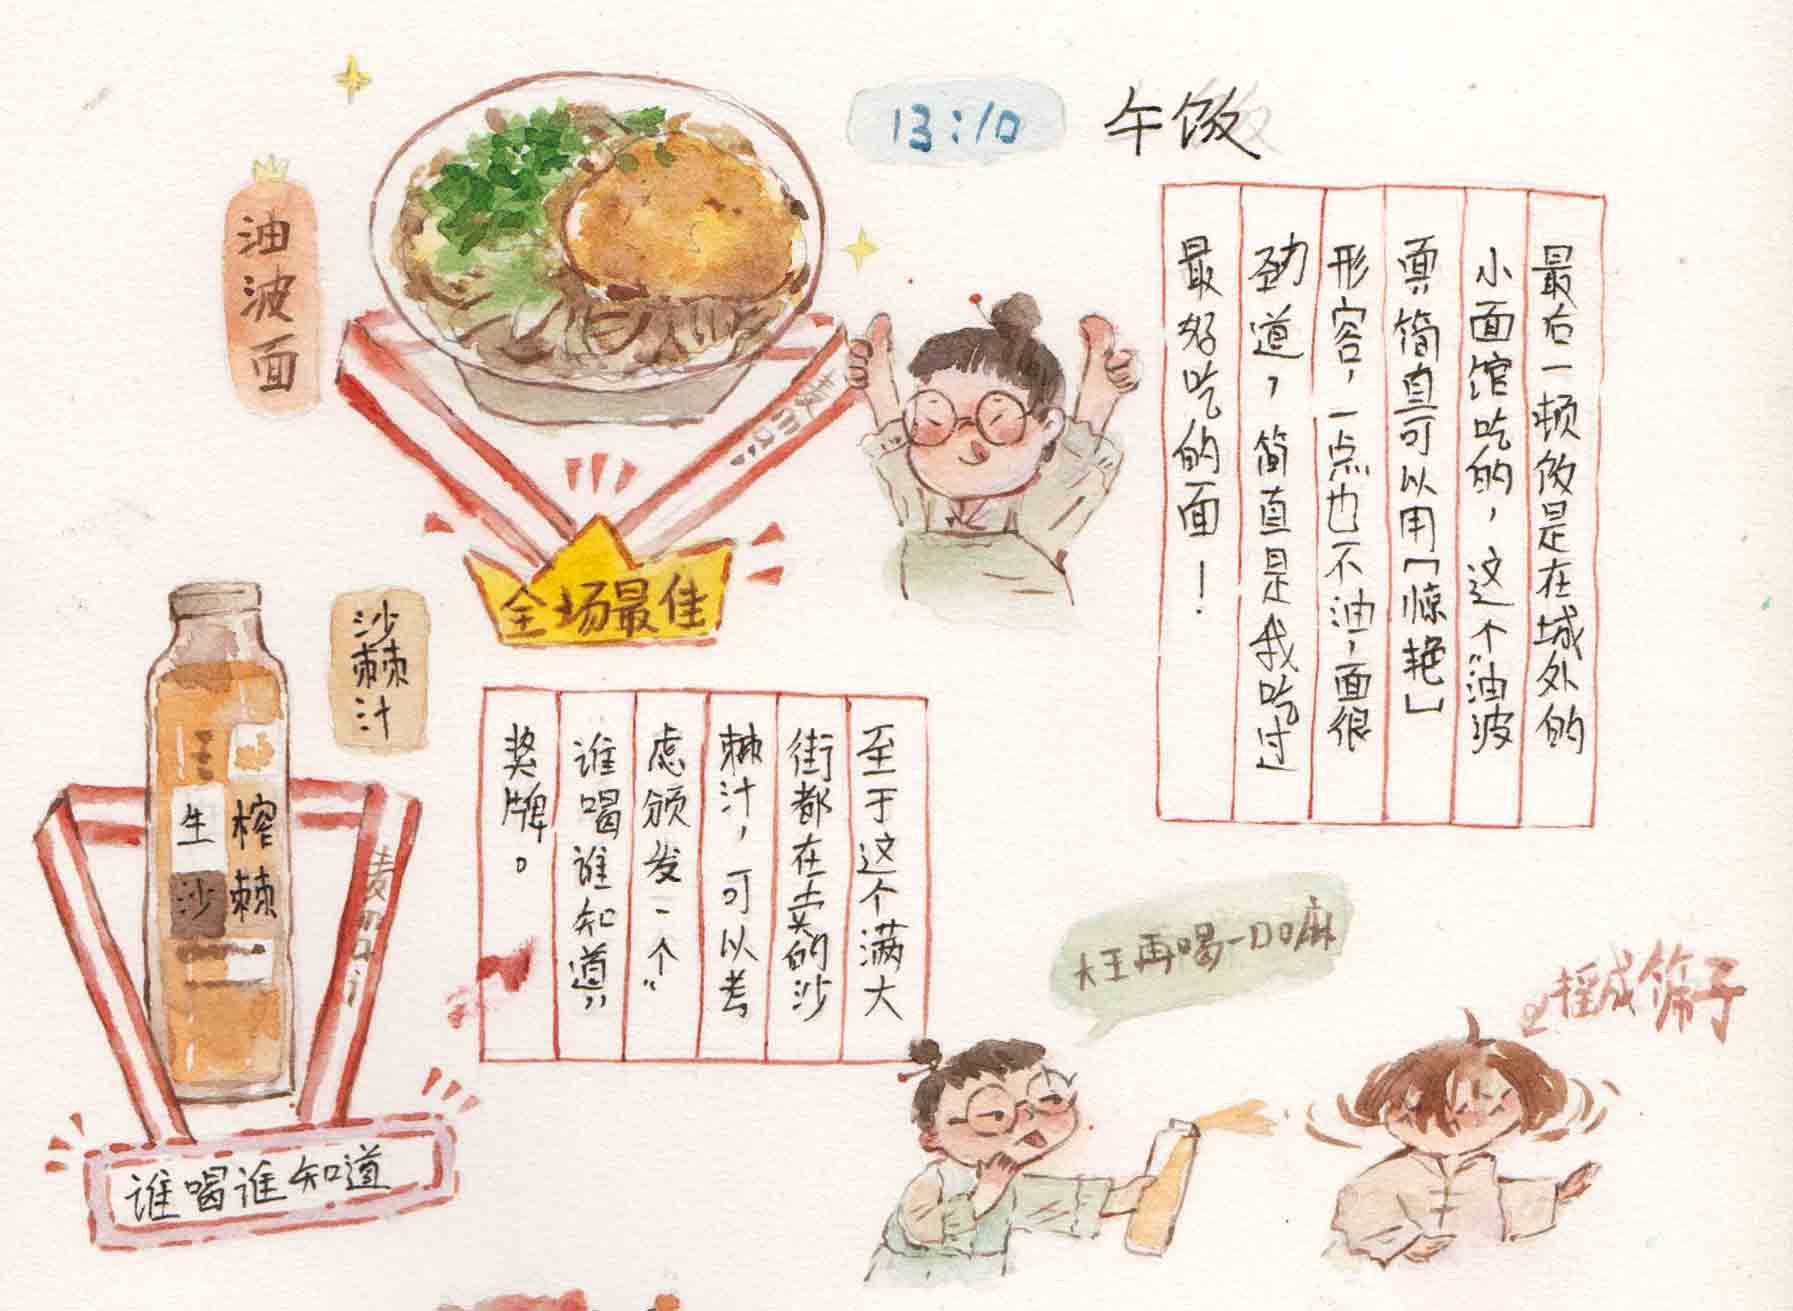 13:10 午饭
油波面
最后一顿饭是在城外的
小面馆吃的，这个“油波
面”，简直可以用「惊艳」
形容，一点也不油，面很
劲道，简直是我吃过
最好吃的面！
全场最佳
沙棘汁
生榨
沙棘
谁喝谁知道
至于这个满大
街都在卖的沙
棘汁，可以考
虑颁发一个“
谁喝谁知道”
奖牌。
大王再喝一口嘛
摇成筛子